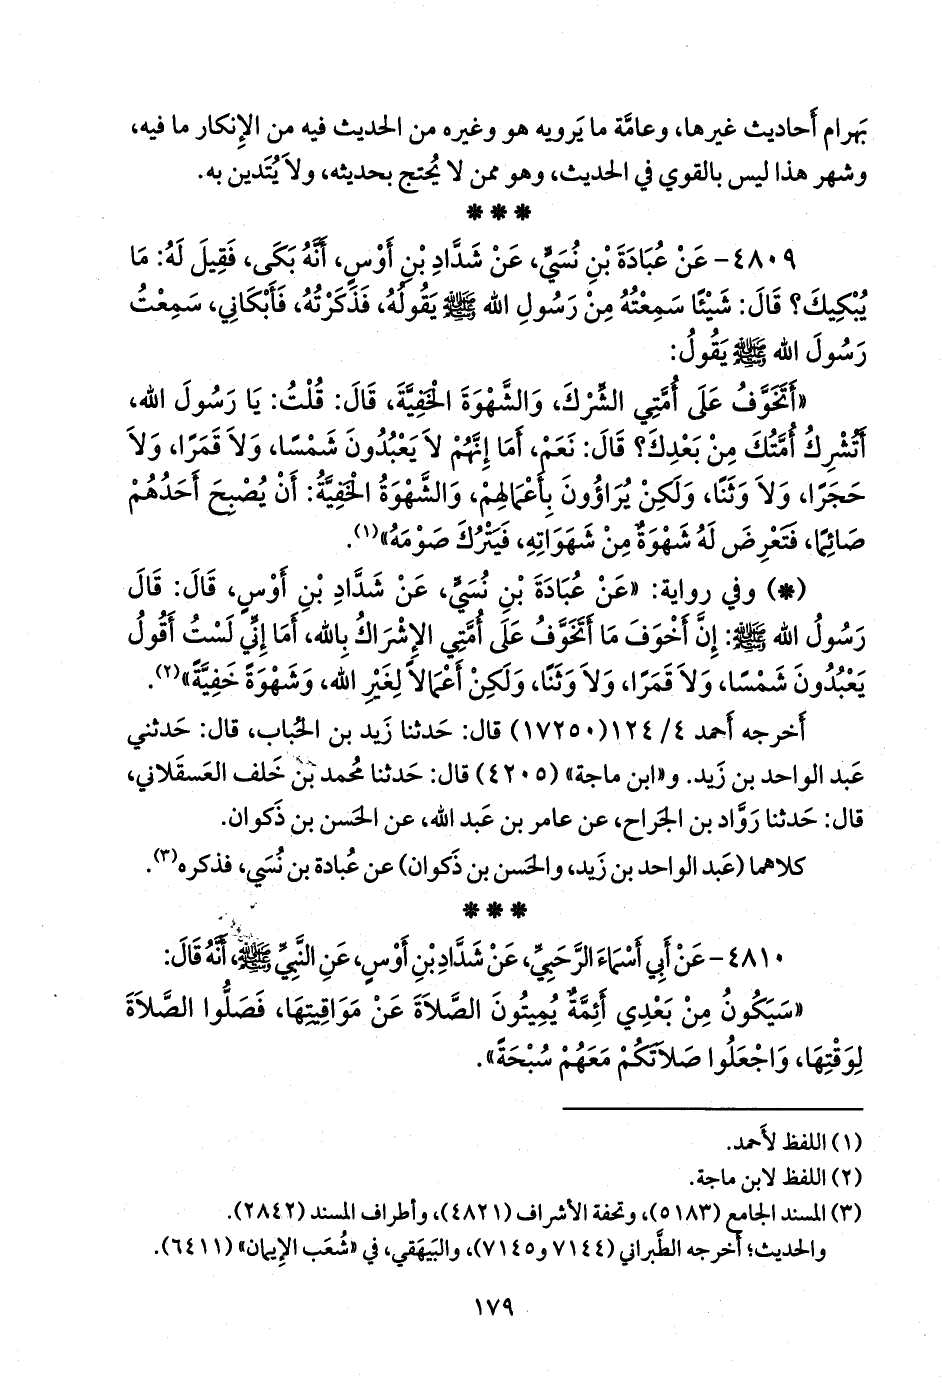 بَهرام أَحاديث غيرها، وعامَّة ما يَرويه هو وغيره من الحديث فيه من الإِنكار ما فيه،
وشهر هذا ليس بالقوي في الحديث، وهو ممن لا يُحتج بحديثه، ولاَ يُتَدين به.
* * *
٤٨٠٩- عَنْ عُبَادَةَ بْنِ نُسَيٍّ، عَنْ شَدَّادِ بْنِ أَوْسٍ، أَنَّهُ بَكَى، فَقِيلَ لَهُ: مَا
يُبْكِيكَ؟ قَالَ: شَيْئًا سَمِعْتُهُ مِنْ رَسُولِ الله ﷺ يَقُولُهُ، فَذَكَرْتُهُ، فَأَبْكَانِي، سَمِعْتُ
رَسُولَ الله ﷺ يَقُولُ:
«أَتَخَوَّفُ عَلَى أُمَّتِي الشِّرْكَ، وَالشَّهْوَةَ الْخَفِيَّةَ، قَالَ: قُلْتُ: يَا رَسُولَ الله،
أَتُشْرِكُ أُمَّتُكَ مِنْ بَعْدِكَ؟ قَالَ: نَعَمْ، أَمَا إِنَّهُمْ لاَ يَعْبُدُونَ شَمْسًا، وَلاَ قَمَرًا، وَلاَ
حَجَرًا، وَلاَ وَثَنًا، وَلَكِنْ يُرَاؤُونَ بِأَعْمَالِهِمْ، وَالشَّهْوَةُ الْخَفِيَّةُ: أَنْ يُصْبِحَ أَحَدُهُمْ
صَائِمًا، فَتَعْرِضَ لَهُ شَهْوَةٌ مِنْ شَهَوَاتِهِ، فَيَتْرُكَ صَوْمَهُ»(١).
(*) وفي رواية: «عَنْ عُبَادَةَ بْنِ نُسَيٍّ، عَنْ شَدَّادِ بْنِ أَوْسٍ، قَالَ: قَالَ
رَسُولُ الله ﷺ: إِنَّ أَخْوَفَ مَا أَتَخَوَّفُ عَلَى أُمَّتِي الإِشْرَاكُ بِالله، أَمَا إِنِّي لَسْتُ أَقُولُ
يَعْبُدُونَ شَمْسًا، وَلاَ قَمَرًا، وَلاَ وَثَنًا، وَلَكِنْ أَعْمَالاً لِغَيْرِ الله، وَشَهْوَةً خَفِيَّةً»(٢).
أَخرجه أَحمد ٤/ ١٢٤(١٧٢٥٠) قال: حَدثنا زَيد بن الحُباب، قال: حَدثني
عَبد الواحد بن زَيد. و«ابن ماجة» (٤٢٠٥) قال: حَدثنا مُحمد بن خَلف العَسقلاني،
قال: حَدثنا رَوَّاد بن الجَراح، عن عامر بن عَبد الله، عن الحَسن بن ذَكوان.
كلاهما (عَبد الواحد بن زَيد، والحَسن بن ذَكوان) عن عُبادة بن نُسَي، فذكره(٣).
* * *
٤٨١٠- عَنْ أَبِي أَسْمَاءَ الرَّحَبِيِّ، عَنْ شَدَّادِ بْنِ أَوْسٍ، عَنِ النَّبِيِّ ﷺ، أَنَّهُ قَالَ:
«سَيَكُونُ مِنْ بَعْدِي أَئِمَّةٌ يُمِيتُونَ الصَّلاَةَ عَنْ مَوَاقِيتِهَا، فَصَلُّوا الصَّلاَةَ
لِوَقْتِهَا، وَاجْعَلُوا صَلاَتَكُمْ مَعَهُمْ سُبْحَةً».
(١) اللفظ لأَحمد.
(٢) اللفظ لابن ماجة.
(٣) المسند الجامع (٥١٨٣)، وتحفة الأشراف (٤٨٢١)، وأطراف المسند (٢٨٤٢).
والحديث؛ أخرجه الطَّبراني (٧١٤٤ و٧١٤٥)، والبَيهَقي، في «شُعَب الإيمان» (٦٤١١).
١٧٩